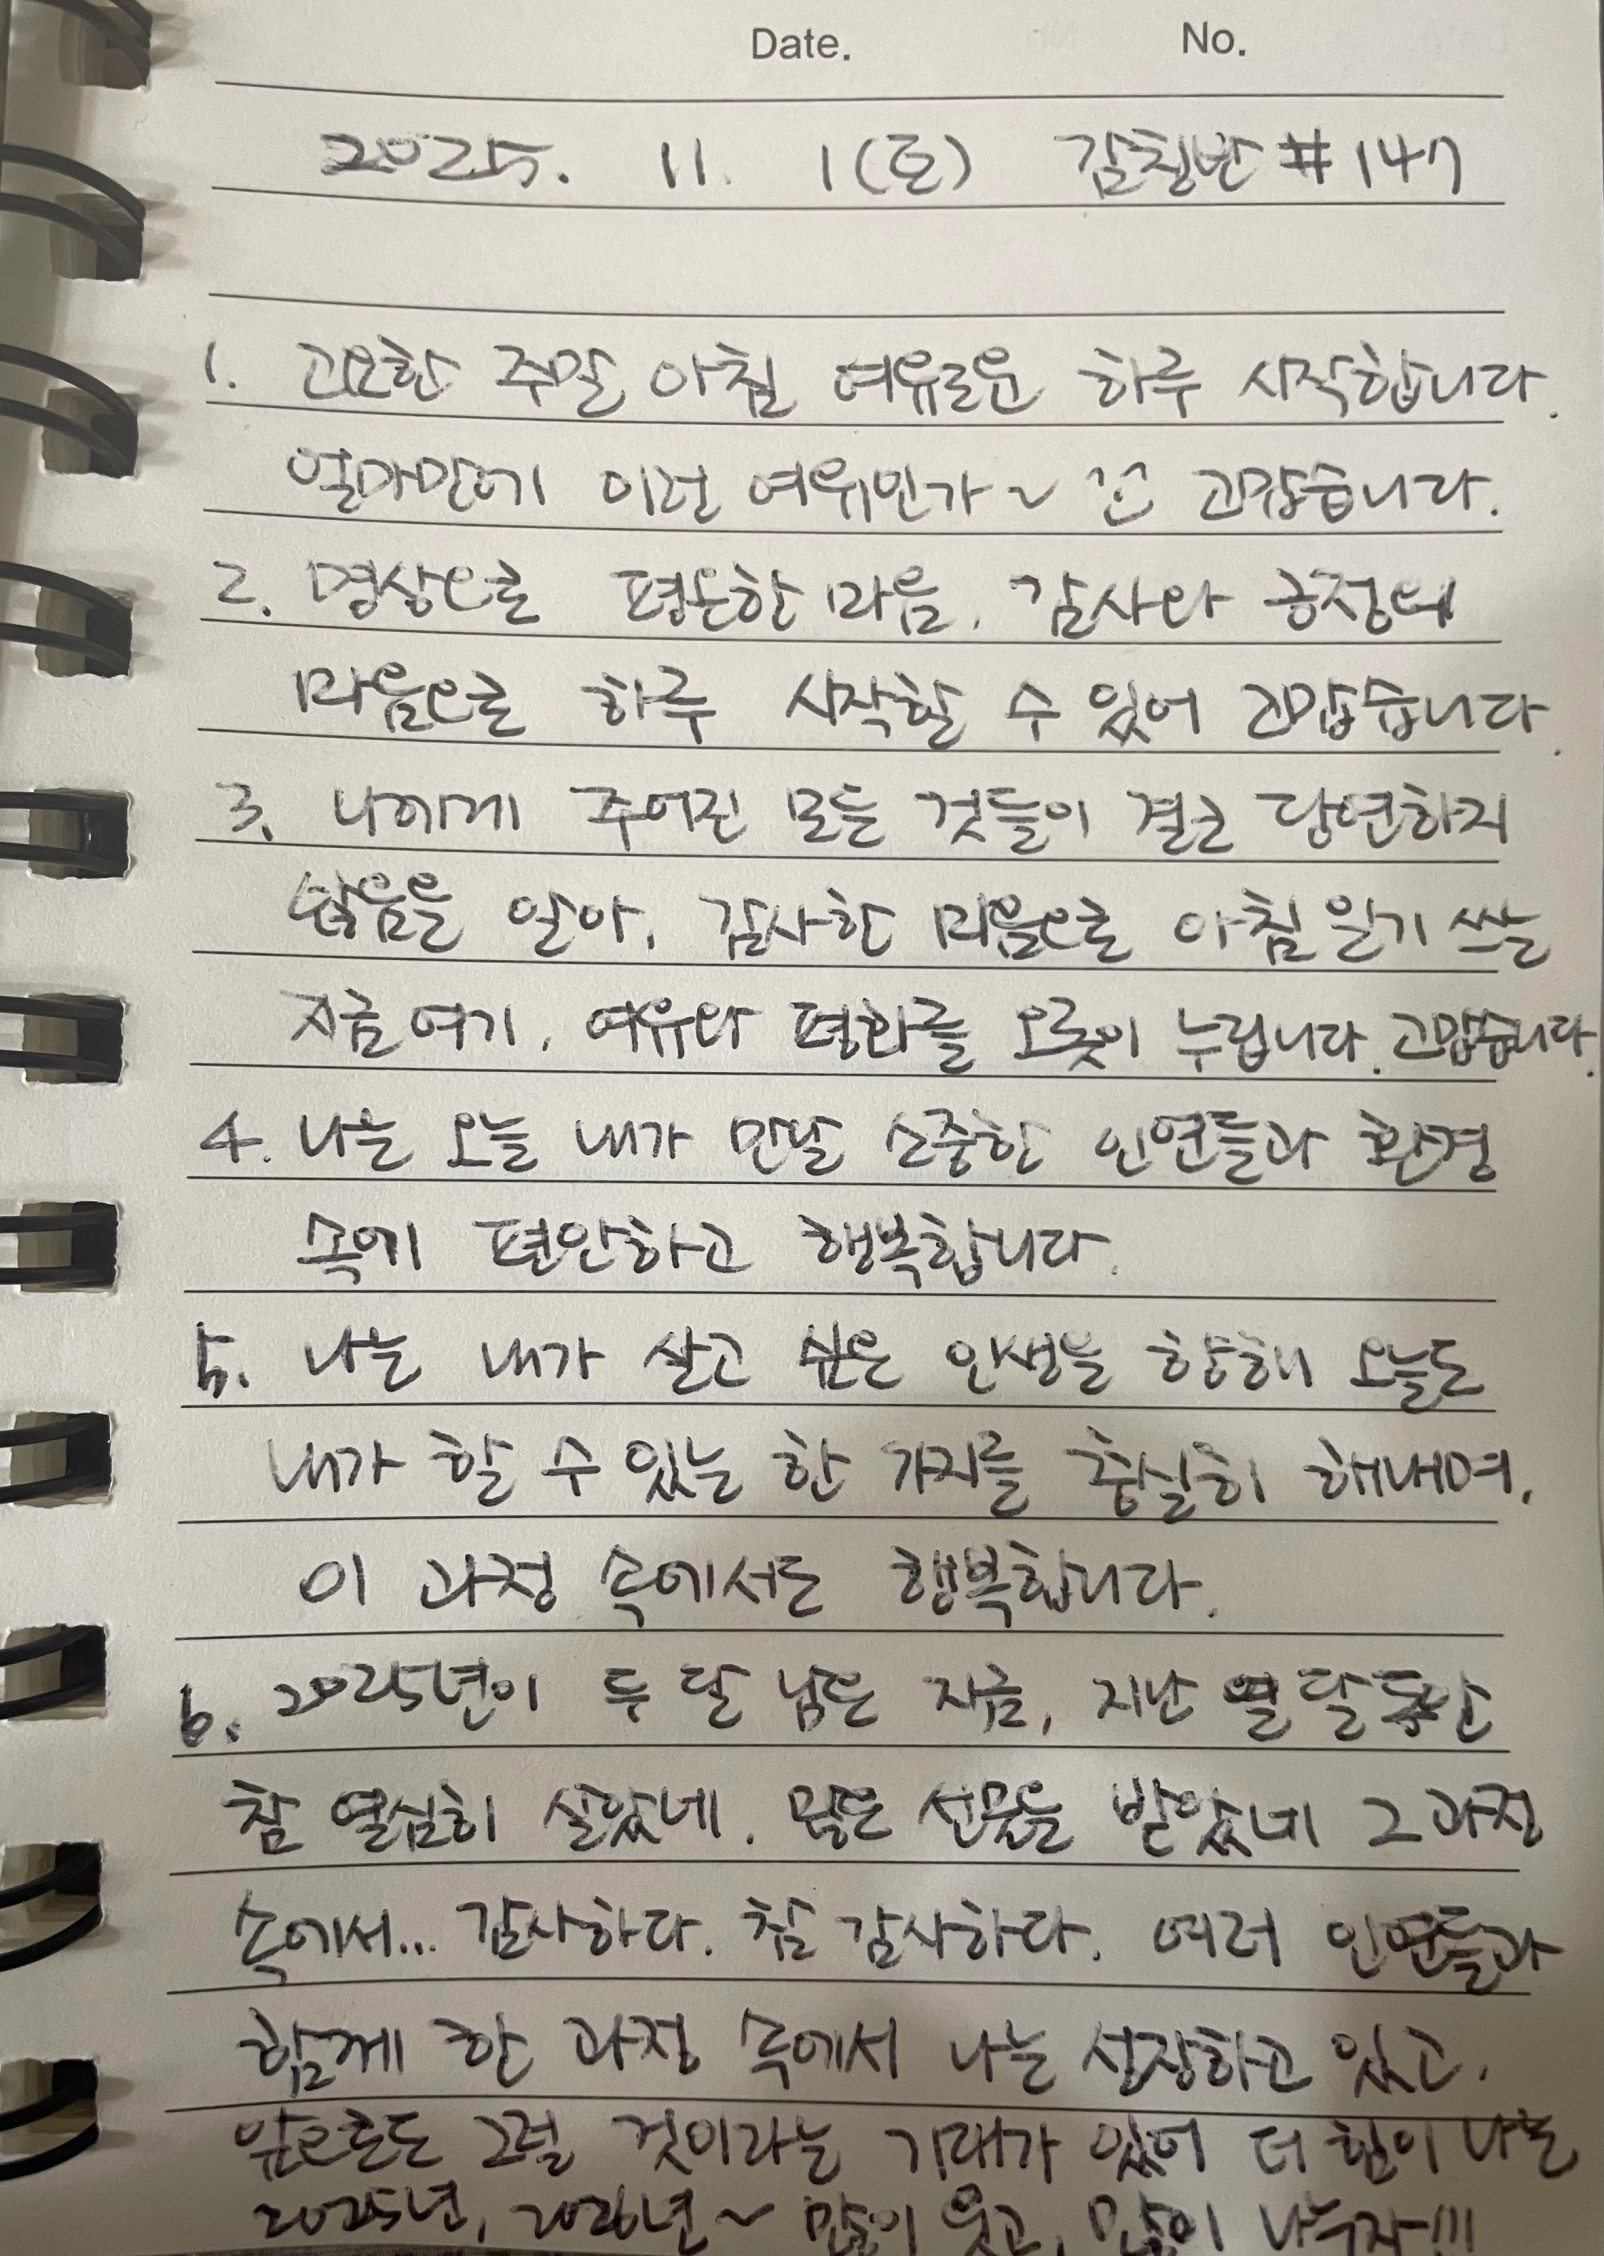 Date. No.
2025. 11. 1(토) 감칭반 #147
1. 고요한 주말 아침 여유로운 하루 시작합니다.
얼마만에 이런 여유인가~ 고맙습니다.
2. 명상으로 평온한 마음, 감사와 긍정의
마음으로 하루 시작할 수 있어 고맙습니다.
3. 나에게 주어진 모든 것들이 결코 당연하지
않음을 알아, 감사한 마음으로 아침 일기 쓰는
지금 여기, 여유와 평화를 오롯이 누립니다. 고맙습니다.
4. 나는 오늘 내가 만날 소중한 인연들과 환경
속에 편안하고 행복합니다.
5. 나는 내가 살고 싶은 인생을 향해 오늘도
내가 할 수 있는 한 가지를 충실히 해내며,
이 과정 속에서도 행복합니다.
6. 2025년이 두 달 남은 지금, 지난 열 달 동안
참 열심히 살았네. 많은 선물을 받았네 그 과정
속에서... 감사하다. 참 감사하다. 여러 인연들과
함께 한 과정 속에서 나는 성장하고 있고,
앞으로도 그럴 것이라는 기대가 있어 더 힘이 나는
2025년, 2026년~ 많이 웃고, 많이 나누자!!!